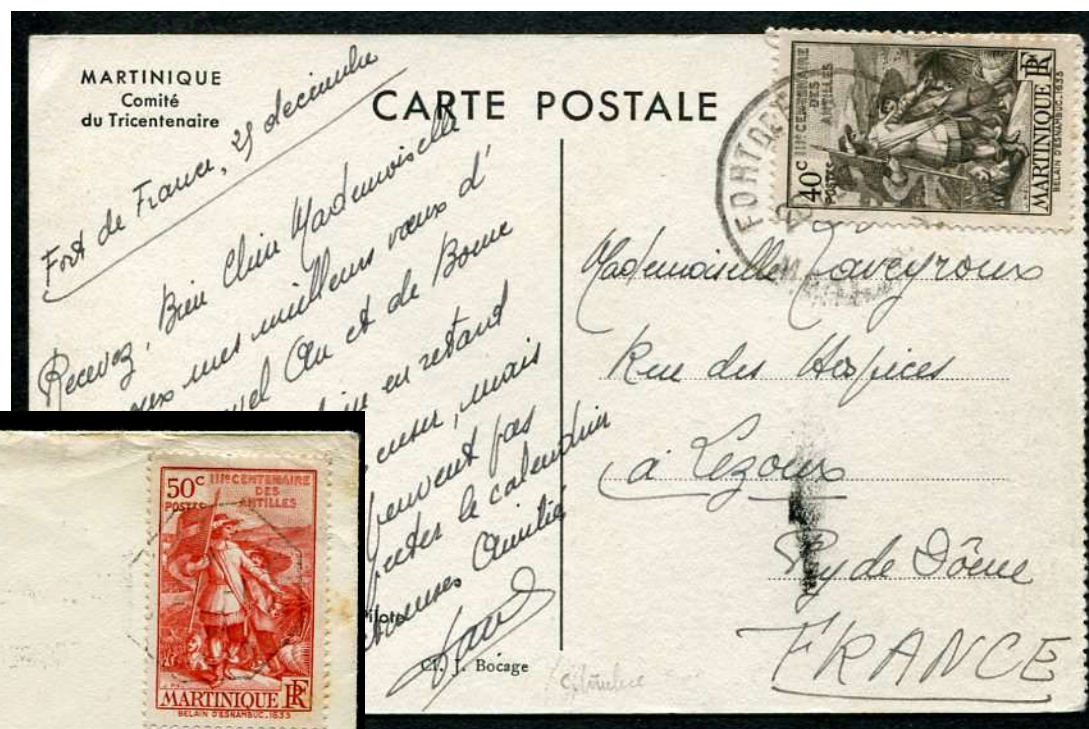 MARTINIQUE
Comité
du Tricentenaire
CARTE POSTALE
Fort de France, 29 decembre
Bien chère Mademoiselle
Recevez,
mes meilleurs vœux d'
An et de Bonne
en retard
, mais
peuvent pas
le calendrier
Amitié
Cl. J. Bocage
40c IIIe CENTENAIRE
DES
ANTILLES
POSTES
MARTINIQUE RF
BELAIN D'ESNAMBUC.1635
FORT DE
Mademoiselle Laveyroux
Rue des Hospices
à Lezoux
Puy de Dôme
FRANCE
50c IIIe CENTENAIRE
DES
POSTES ANTILLES
MARTINIQUE RF
BELAIN D'ESNAMBUC.1635